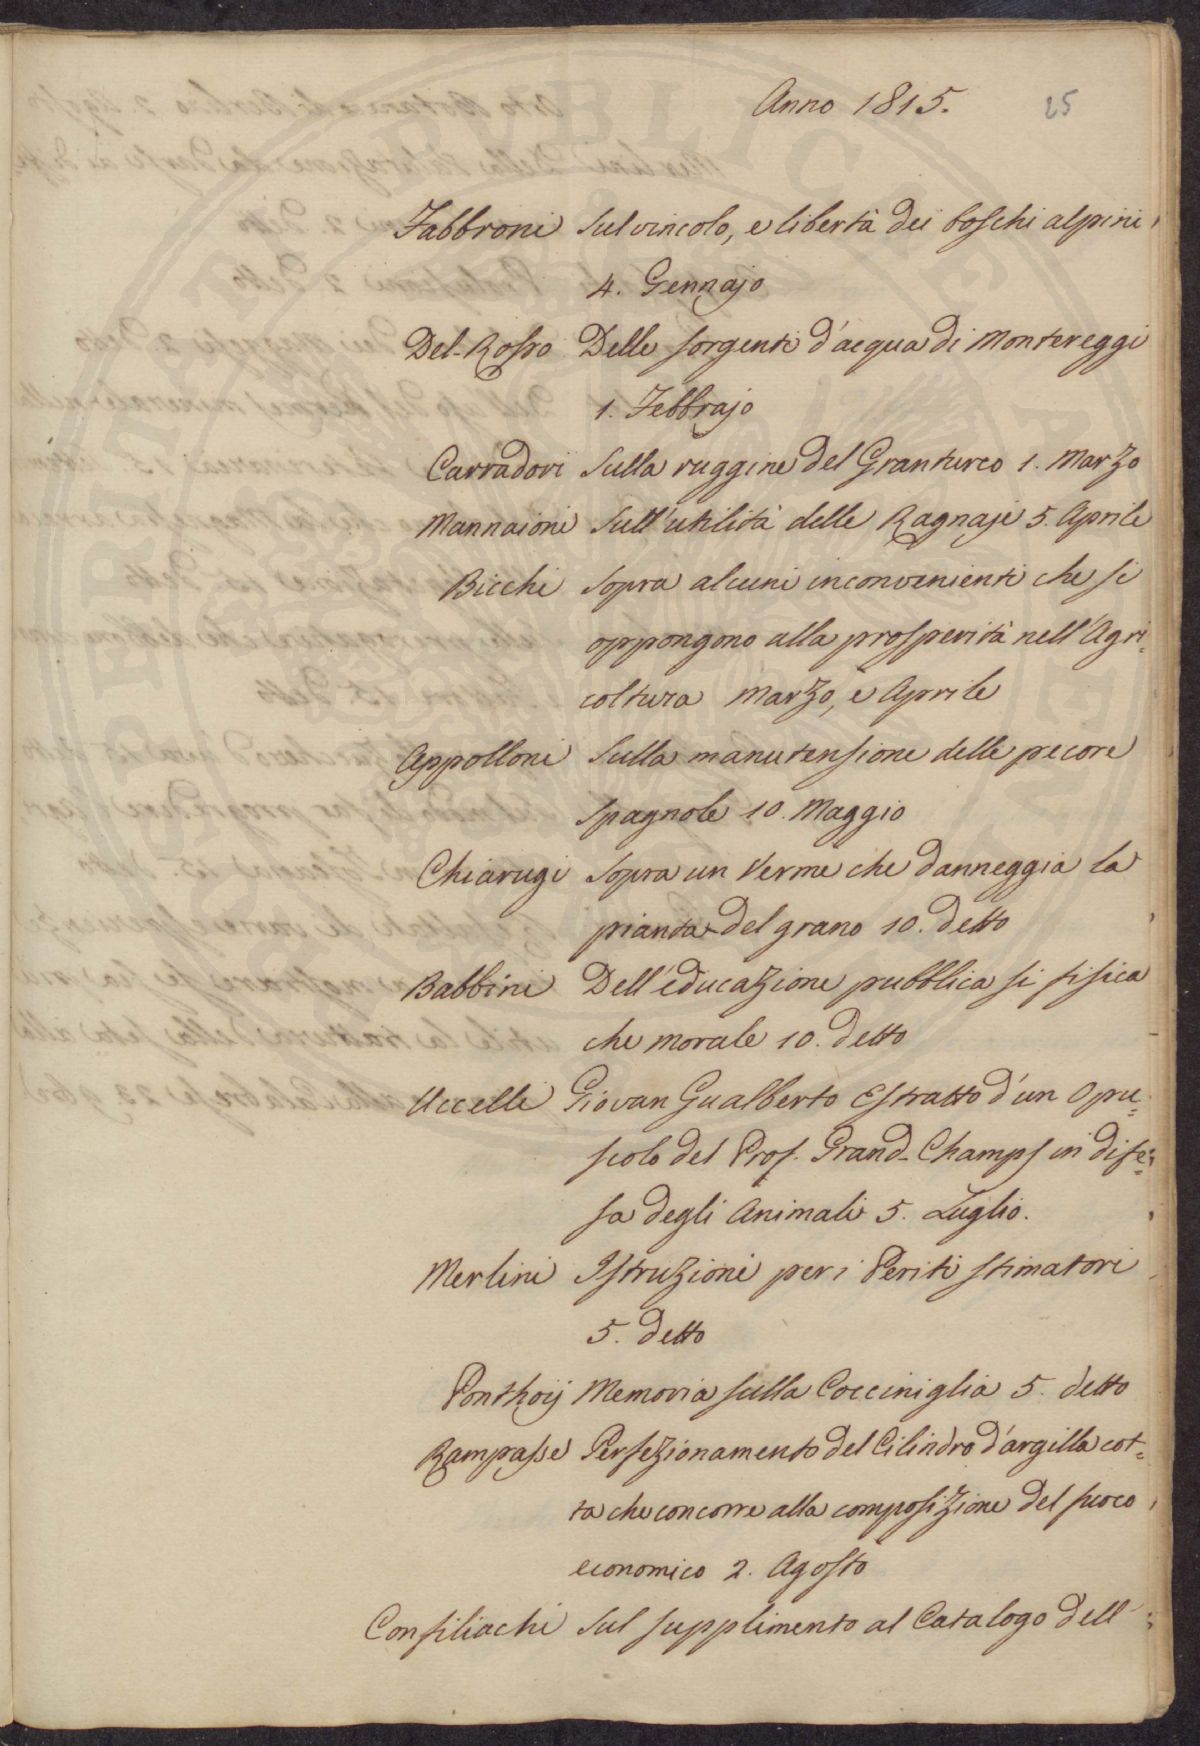 Anno 1815. 25
Fabbroni Sul vincolo, e libertà dei boschi alpini
4. Gennajo
Del-Rosso Delle sorgenti d'acqua di Montereggi
1. Febbrajo
Carradori Sulla ruggine del Granturco 1. Marzo
Mannaioni Sull'utilità delle Ragnaje 5. Aprile
Bicchi Sopra alcuni inconvenienti che si
oppongono alla prosperità nell'Agri=
coltura Marzo, e Aprile
Appolloni Sulla manutensione delle pecore
Spagnole 10. Maggio
Chiarugi Sopra un Verme che danneggia la
pianta del grano 10. detto
Babbini Dell'educazione pubblica si fisica
che morale 10. detto
Uccelli Giovan Gualberto Estratto d'un Opu=
scolo del Prof. Grand-Champs in dife=
sa degli Animali 5. Luglio.
Merlini Istruzioni per i Periti stimatori
5. detto
Ponthoij Memoria sulla Cocciniglia 5. detto
Rampasse Perfezionamento del Cilindro d'argilla cot=
ta che concorre alla composizione del fuoco
economico 2. Agosto
Configliachi Sul supplimento al Catalogo dell'